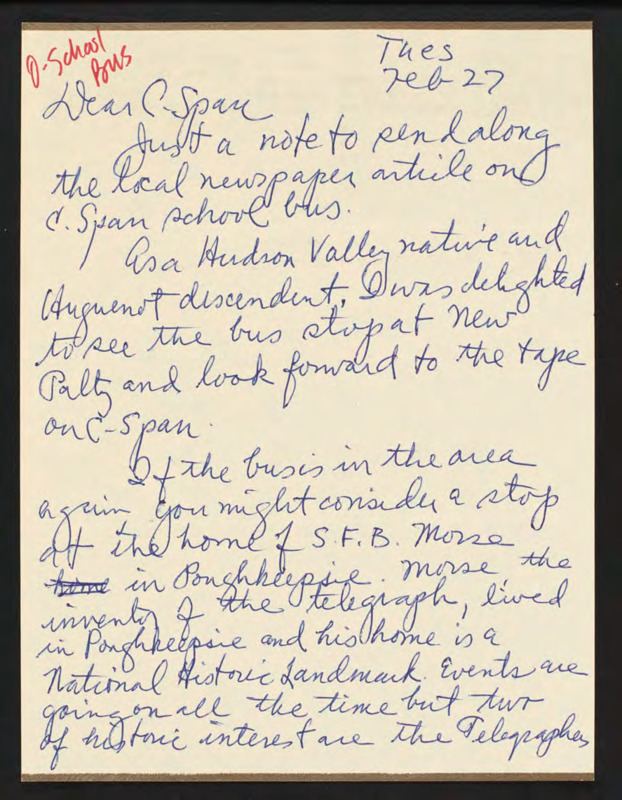 O-School
Bus
Tues
Feb 27
Dear C-Span
Just a note to send along
the local newspaper article on
C-Span school bus.
As a Hudson Valley native and
Huguenot descendent, I was delighted
to see the bus stop at New
Paltz and look forward to the tape
on C-Span.
If the bus is in the area
again you might consider a stop
at the home of S.F.B. Morse
in Poughkeepsie. Morse the
inventor of the telegraph, lived
in Poughkeepsie and his home is a
National Historic Landmark. Events are
going on all the time but two
of historic interest are the Telegraphers